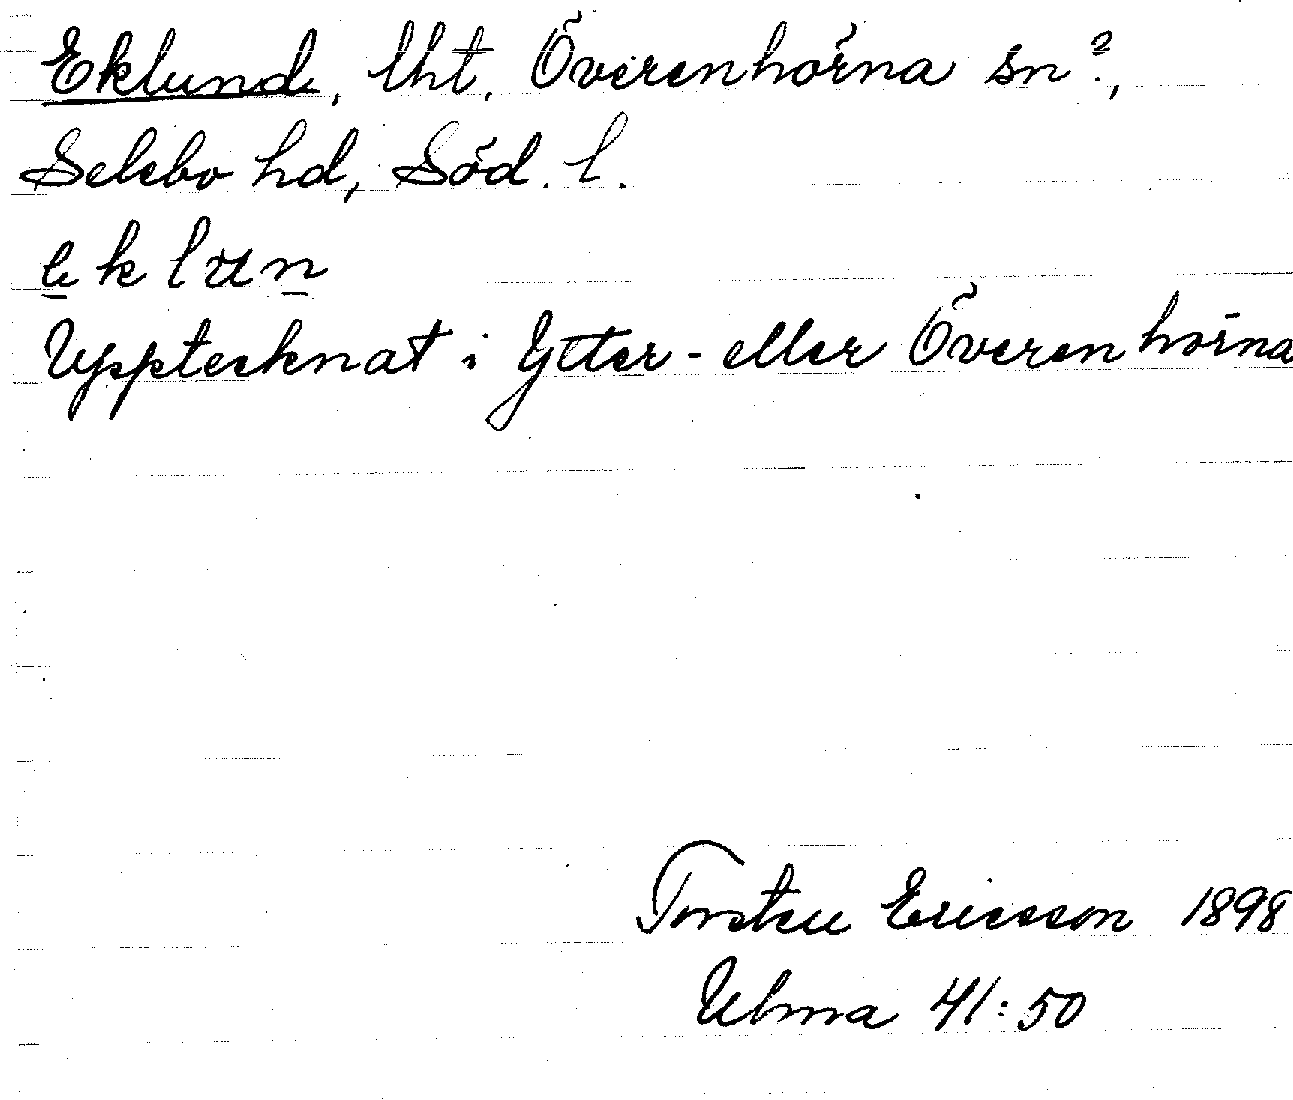 Eklund, lht. Överenhörna sn?,
Selebo hd, Söd. l.
e̲klun̲
Upptecknat i Ytter- eller Överenhörna
Torsten Ericsson 1898
Ulma 41:50